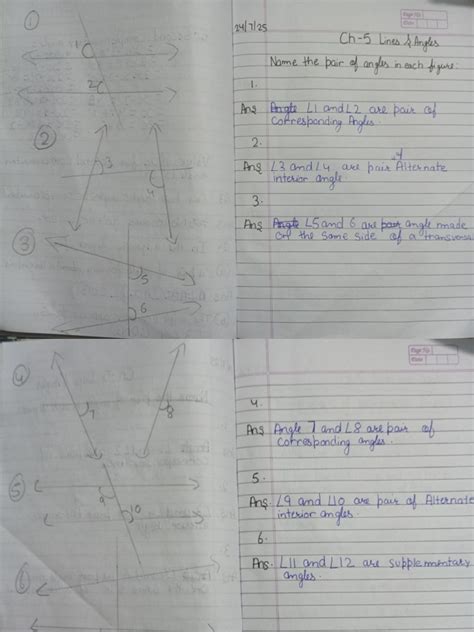 ①
1
2
②
3
4
③
5
6
Page No.
Date
24/7/25
Ch-5 Lines & Angles
Name the pair of angles in each figure:
1.
Ans Angle ∠1 and ∠2 are pair of
Corresponding Angles.
2.
Ans ∠3 and ∠4 are pair of Alternate
interior angle.
3.
Ans Angle ∠5 and 6 are pair angle made
on the same side of a transversal
④
7
8
⑤
9
10
⑥
Page No.
Date
4.
Ans Angle 7 and ∠8 are pair of
Corresponding angles.
5.
Ans. ∠9 and ∠10 are pair of Alternate
interior angles.
6.
Ans. ∠11 and ∠12 are supplementary
angles.